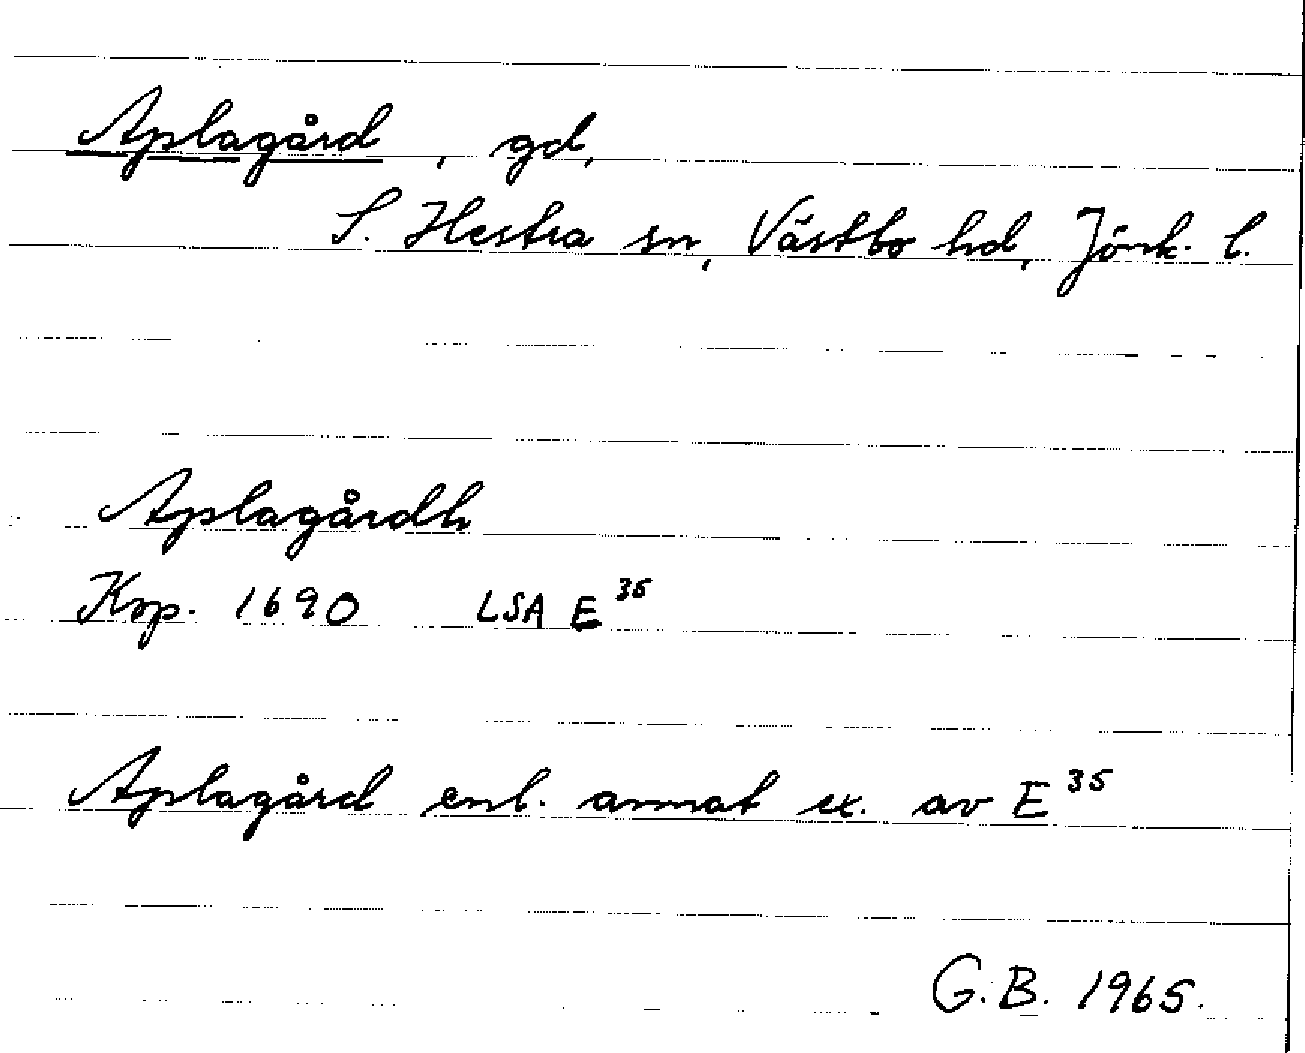 Aplagård, gd,
S. Hestra sn, Västbo hd, Jönk. l.
Aplagårdh
Kop. 1690 LSA E³⁵
Aplagård enl. annat ex. av E³⁵
G.B. 1965.